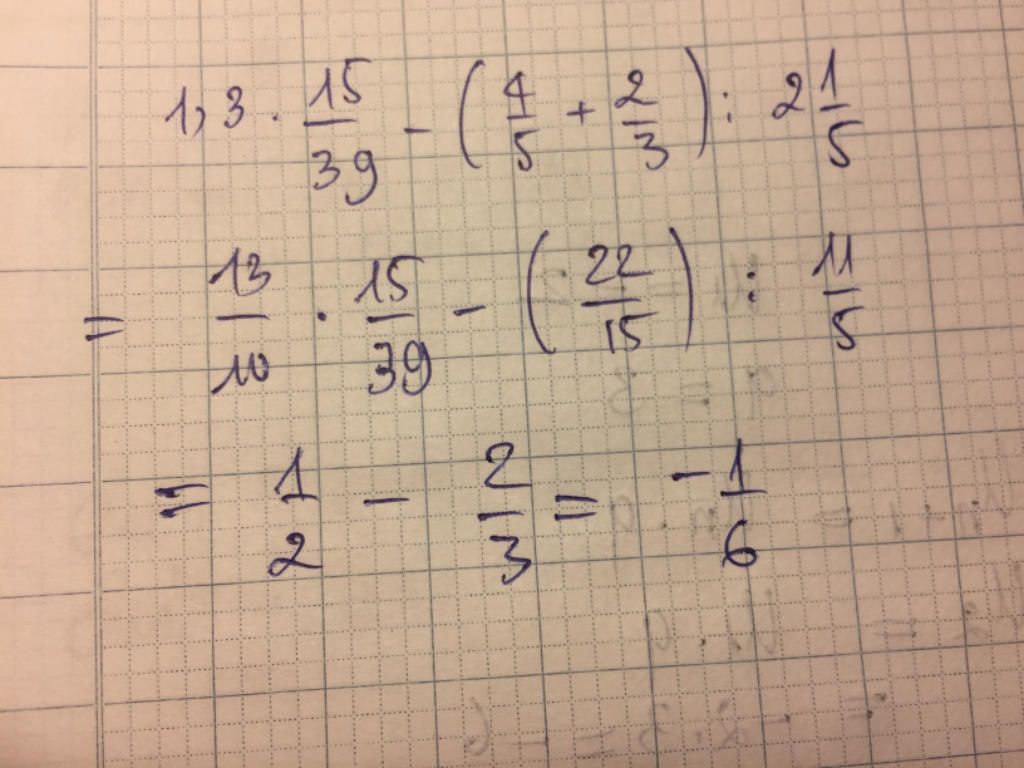 1,3 · 15/39 - (4/5 + 2/3) : 2 1/5
= 13/10 · 15/39 - (22/15) : 11/5
= 1/2 - 2/3 = -1/6